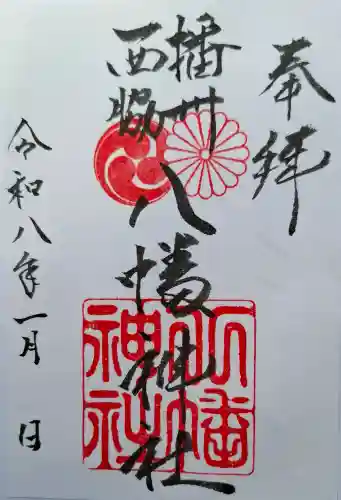 奉拝
播州
西脇
八幡神社
令和八年一月 日
八幡
神社